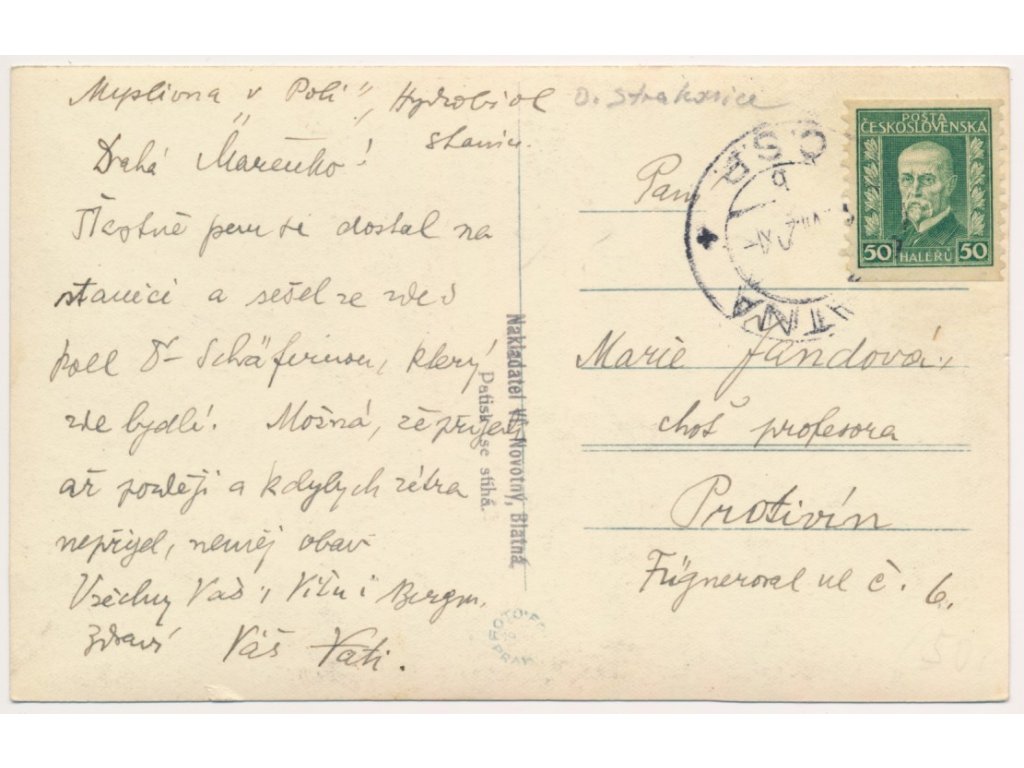 Myslivna v Poli", Hydrobiol
stanice.
Drahá Mařenko!
Šťastně jsem se dostal na
stanici a sešel se zde s
koll Dr Schäfernou, který
zde bydlí. Možná, že přijedu
až později a kdybych zítra
nepřijel, neměj obav
Všechny Vás, i Bergm.
zdraví Váš Vati.
D. Strakonice
Paní
Marie Jandová,
choť profesora
Protivín
Fügnerova ul č. 6.
POŠTA
ČESKOSLOVENSKA
50 HALÉŘŮ 50
ČSR
Nakladatel Vl. Novotný, Blatná
Patisk se stíhá.
50